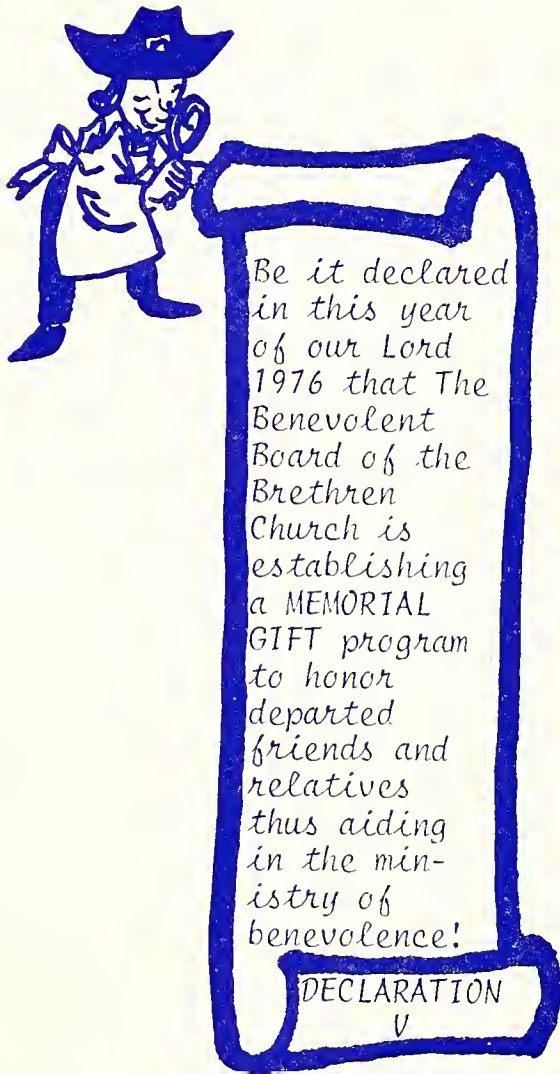 Be it declared
in this year
of our Lord
1976 that The
Benevolent
Board of the
Brethren
Church is
establishing
a MEMORIAL
GIFT program
to honor
departed
friends and
relatives
thus aiding
in the min-
istry of
benevolence!
DECLARATION
V